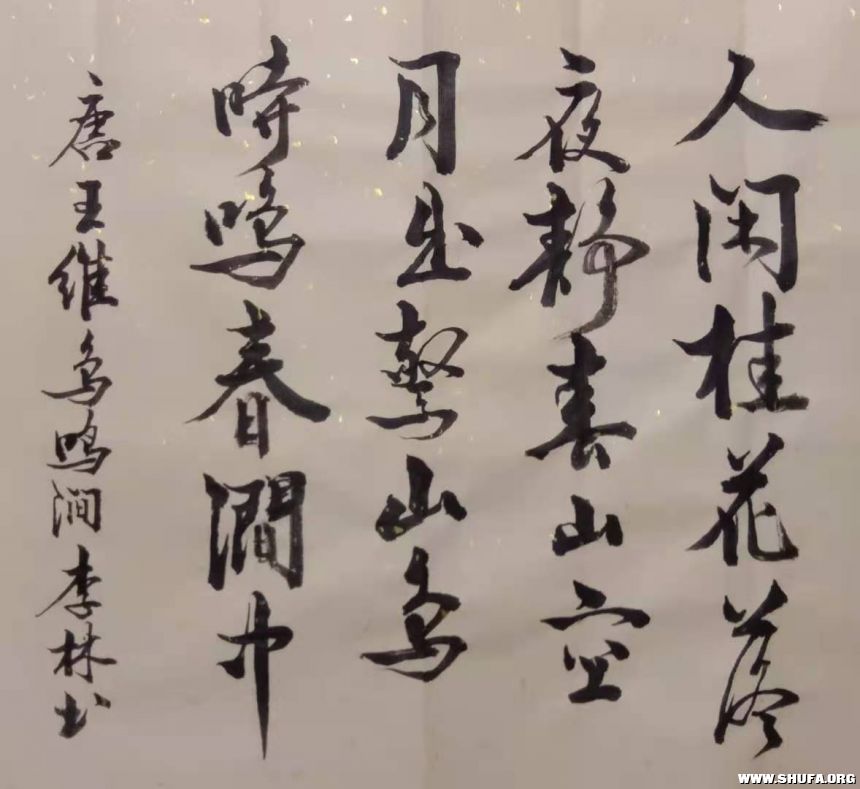 人闲桂花落
夜静春山空
月出驚山鸟
時鸣春澗中
唐王维鸟鸣涧李林书
WWW.SHUFA.ORG